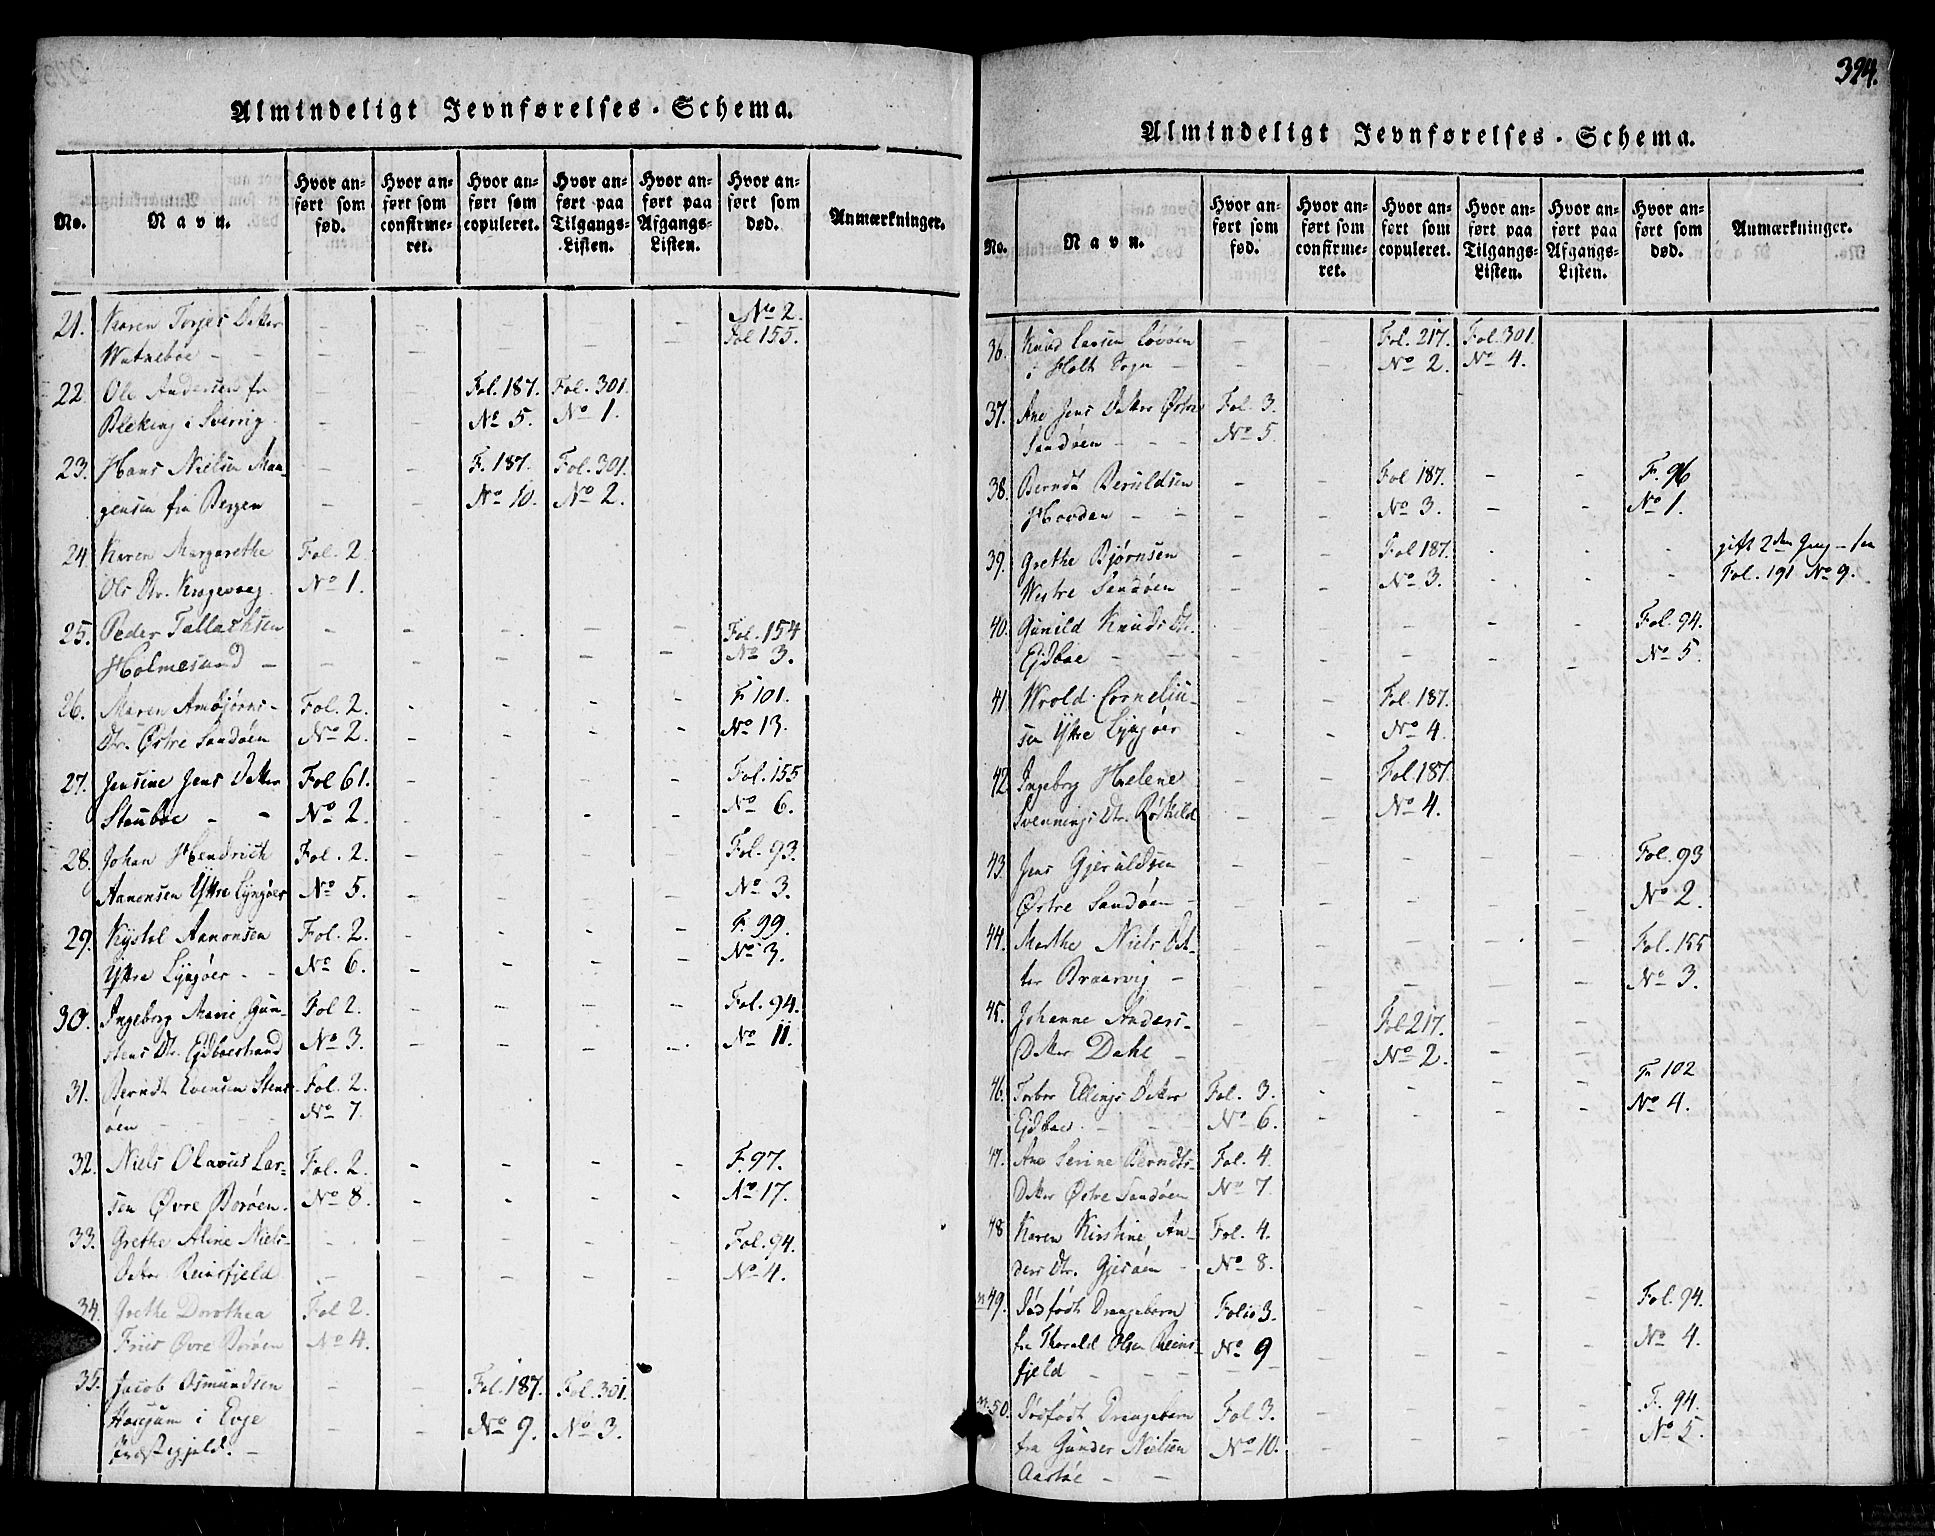 Almindeligt Jevnførelses-Schema.
No.
Navn.
Hvor an-
ført som
fød.
Hvor an-
ført som
confirme-
ret.
Hvor an-
ført som
copuleret.
Hvor an-
ført paa
Tilgangs-
Listen.
Hvor an-
ført paa
Afgangs-
Listen.
Hvor an-
ført som
død.
Anmærkninger.
21. Karen Torjes Datter No 2.
Watneboe - - Fol 155.
22. Ole Andersen fr Fol. 187. Fol. 301.
Bleking i Sverrig No 5. No 1.
23. Hans Nielsen Mon- F. 187. Fol. 301.
gensen fra Bergen No 10. No 2.
24. Karen Margarethe Fol. 2.
Ols Dtr. Krogevaag. No 1.
25. Peder Tallachsen Fol. 154
Holmesund - No 3.
26. Maren Ambjørns- Fol. 2. F 101.
Dtr. Østre Sandøen No 2. No 13.
27. Jensine Jens Datter Fol 61. Fol. 155
Stenboe - - No 2. No 6.
28. Johan Hendrich Fol. 2. Fol. 93.
Aanonsen Yttre Lyngøer No 5. No 3.
29. Kistol Aanonsen Fol. 2. F. 99.
Yttre Lyngøer - - No 6. No 3.
30. Ingeborg Marie Gun- Fol 2. Fol. 94.
stens Dtr. Ejdboestrand No 3. No 11.
31. Berndt Evensen Stens- Fol. 2.
øen No 7.
32. Niels Olavus Lar- Fol. 2. F. 97.
sen Øvre Borøen. No 8. No 17.
33. Grethe Aline Niels- Fol. 94.
Datter Reinsfjeld No 4.
34. Grethe Dorothea Fol 2.
Friis Øvre Borøen No 4.
35. Jacob Osmundsen Fol. 187. Fol. 301.
i Evje No 9. No 3.
Præstegjeld. -
324.
Almindeligt Jevnførelses-Schema.
No.
Navn.
Hvor an-
ført som
fød.
Hvor an-
ført som
confirme-
ret.
Hvor an-
ført som
copuleret.
Hvor an-
ført paa
Tilgangs-
Listen.
Hvor an-
ført paa
Afgangs-
Listen.
Hvor an-
ført som
død.
Anmærkninger.
36. Knud Larsen Løvøen Fol. 217. Fol. 301
i Holt Sogn - No 2. No 4.
37. Ane Jens Datter Østre Fol. 3.
Sandøen - - - No 5.
38. Berndt Beruldsen Fol 187. F. 96
Hovden - - No 3. No 1.
39. Grethe Bjørnsen Fol 187. gift 2den Gang
Westre Sandøen No 3. Fol. 191 No 9.
40. Gunild Knuds Dtr. Fol. 94.
Ejdboe - - No 5.
41. Wrold Corneliu- Fol. 187.
sen Yttre Lyngøer No 4.
42. Ingeborg Helene Fol. 187.
Svennings Dtr. Røskild No 4.
43. Jens Gjeruldsen Fol. 93
Østre Sandøen - No 2.
44. Marthe Niels Dat- Fol. 155
ter Braarvig - No 3.
45. Johanne Anders- Fol 217.
Datter Dahl - No 2.
46. Torbor Ellings Datter Fol. 3. F. 102
Ejdboe. - - - No 6. No 4.
47. Ane Serine Berndts- Fol. 4.
Datter Østre Sandøen No 7.
48 Karen Kirstine An- Fol. 4.
ders Dtr. Gjesøen - No 8.
n 49. Dødfødt Drengebarn Folio 3. Fol. 94.
fra Thorald Olsen Reins- No 9 No 4.
fjeld - - -
n. 50. Dødfødt Drengebarn Fol 3. F. 94.
fra Gunder Nielsen No 10. No 5.
Aastøe - -